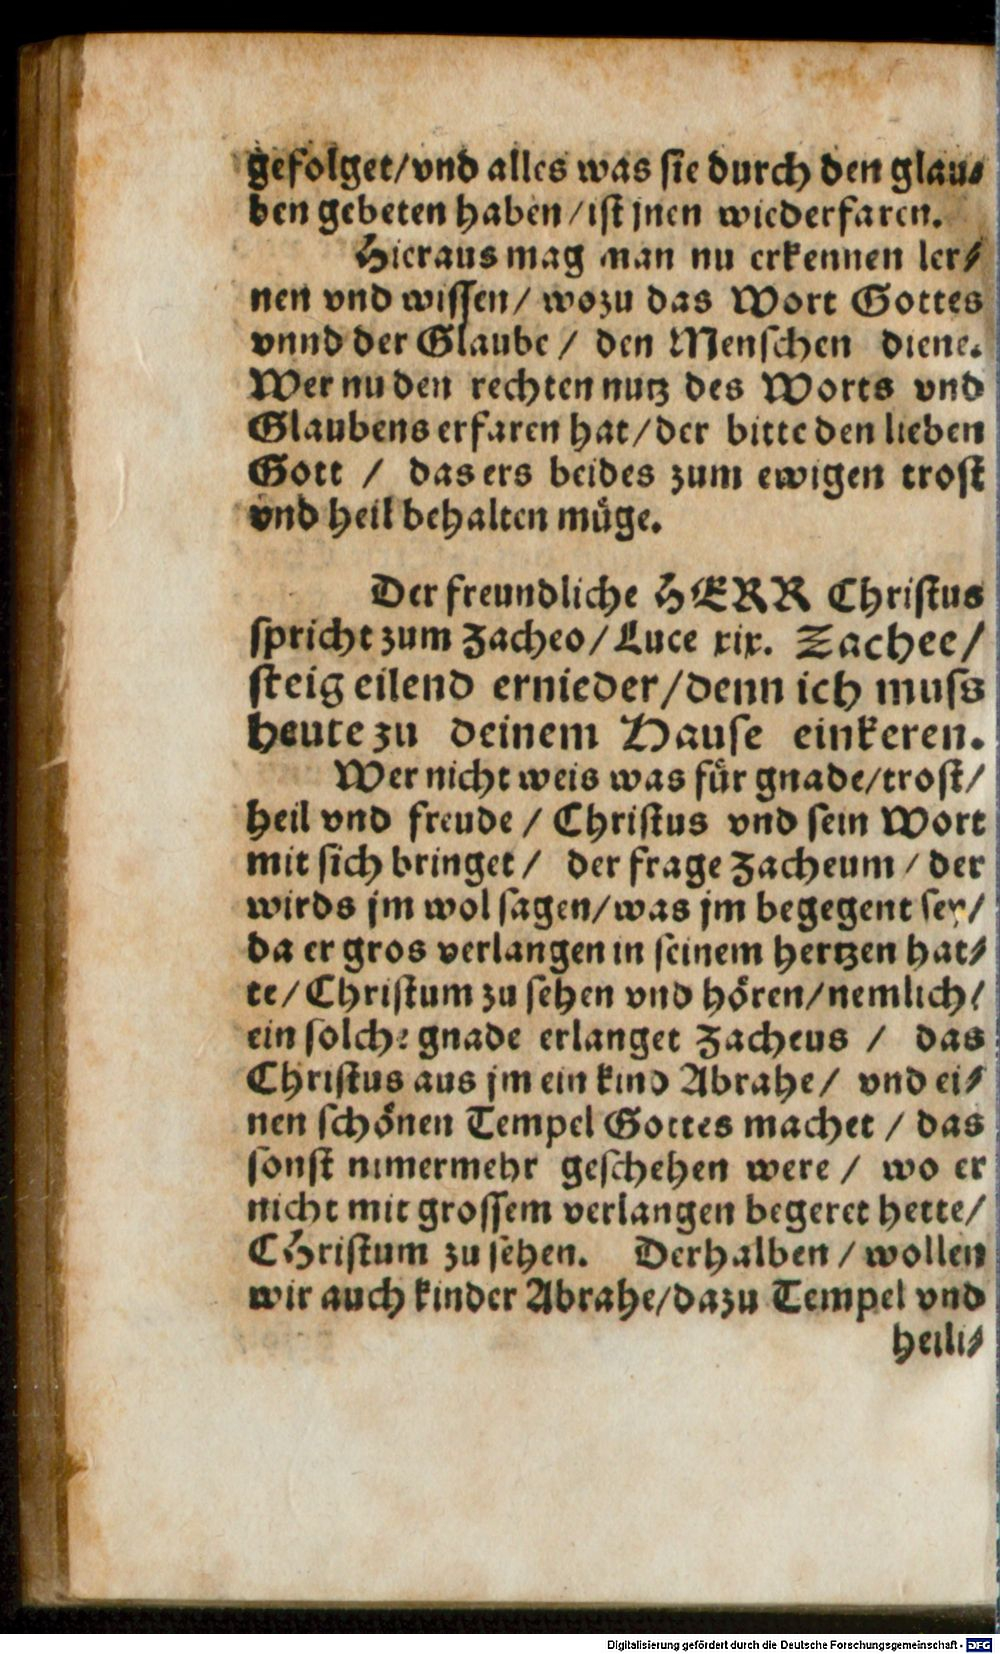 gefolget/vnd alles was sie durch den glau⸗
ben gebeten haben/ist jnen wiederfaren.
Hieraus mag man nu erkennen ler⸗
nen vnd wissen/ wozu das Wort Gottes
vnnd der Glaube/ den Menschen diene.
Wer nu den rechten nutz des Worts vnd
Glaubens erfaren hat/der bitte den lieben
Gott / das ers beides zum ewigen trost
vnd heil behalten müge.
Der freundliche HERR Christus
spricht zum Zacheo/Luce xix. Zachee/
steig eilend ernieder/denn ich muss
heute zu deinem Hause einkeren.
Wer nicht weis was für gnade/trost/
heil vnd freude / Christus vnd sein Wort
mit sich bringet/ der frage Zacheum / der
wirds jm wol sagen/was jm begegent sey/
da er gros verlangen in seinem hertzen hat⸗
te/Christum zu sehen vnd hören/nemlich/
ein solche gnade erlanget Zacheus / das
Christus aus jm ein kind Abrahe/ vnd ei⸗
nen schönen Tempel Gottes machet / das
sonst nimermehr geschehen were / wo er
nicht mit grossem verlangen begeret hette/
CHristum zu sehen. Derhalben / wollen
wir auch kinder Abrahe/dazu Tempel vnd
heili⸗
Digitalisierung gefördert durch die Deutsche Forschungsgemeinschaft - DFG